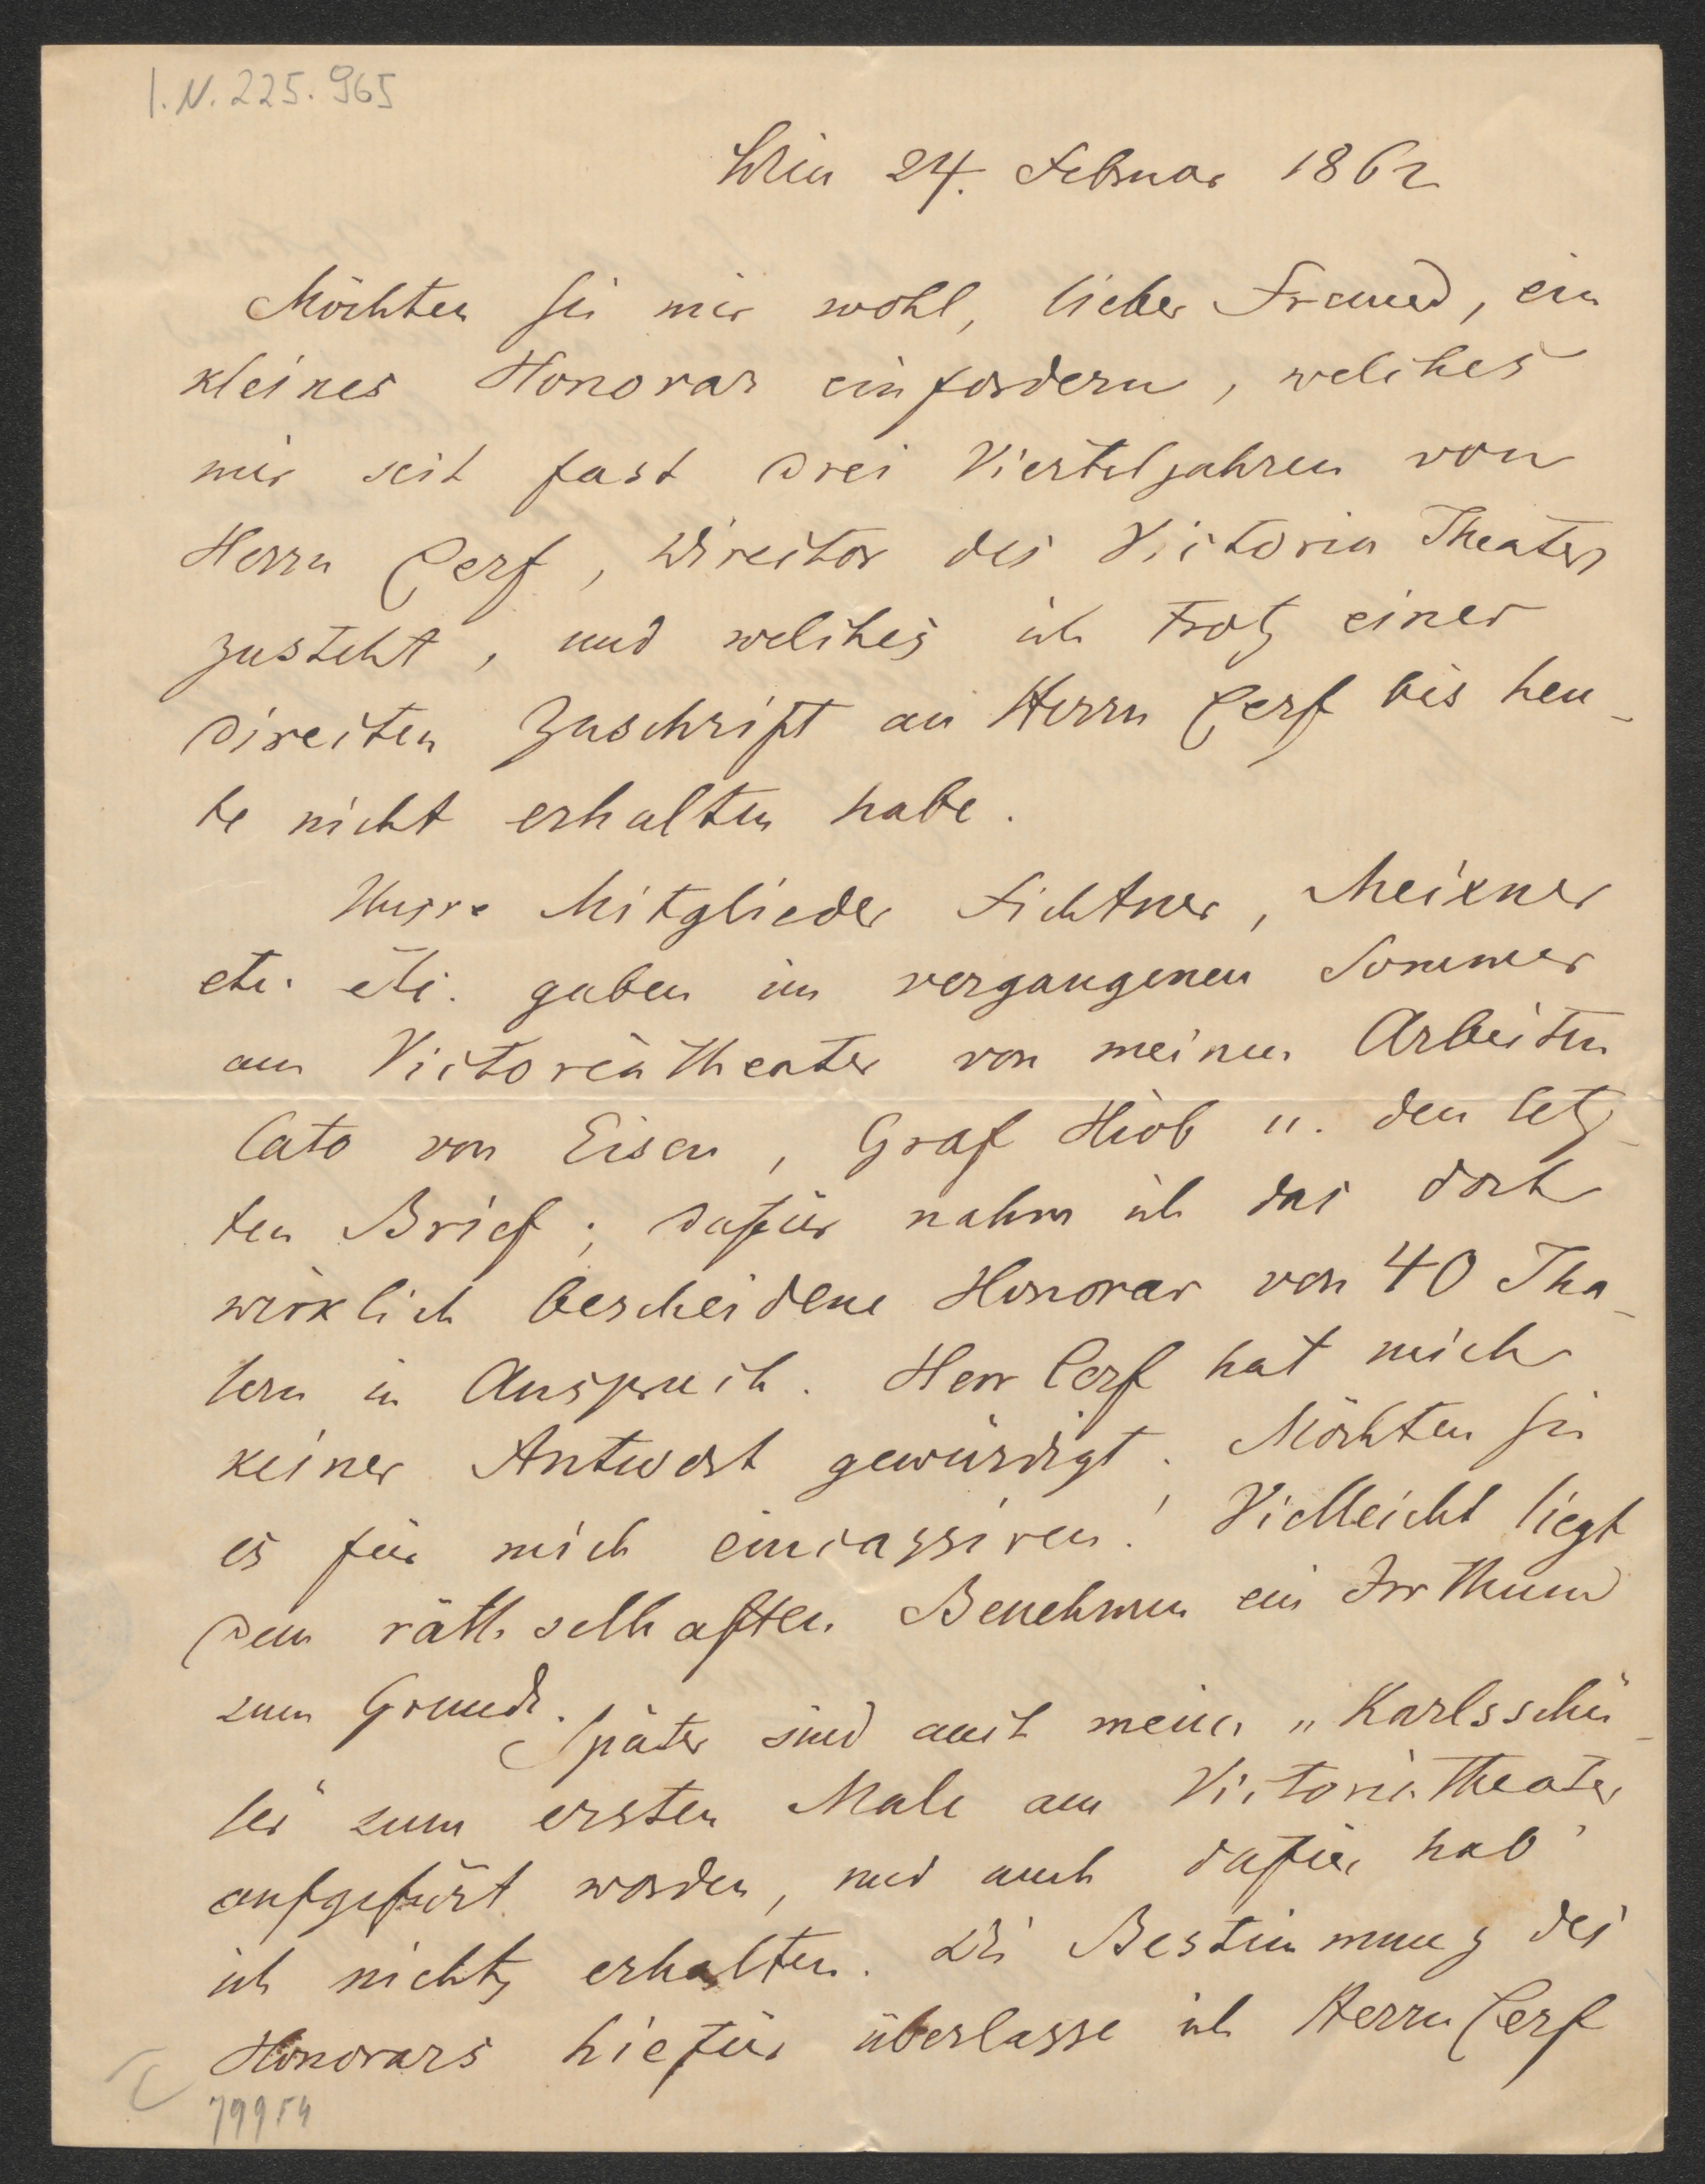 I.N. 225.965
Wien 24. Februar 1862
Möchten Sie mir wohl, lieber Freund, ein
kleines Honorar einfordern, welches
mir seit fast drei Vierteljahren von
Herrn Cerf, Director des Victoria Theaters
zusteht, und welches ich trotz einer
directen Zuschrift an Herrn Cerf bis heu-
te nicht erhalten habe.
Unsre Mitglieder Fichtner, Meixner
etc. etc. gaben im vergangenen Sommer
am Victoriatheater von meinen Arbeiten
Cato von Eisen, Graf Hiob u. den letz-
ten Brief; dafür nahm ich das doch
wirklich bescheidene Honorar von 40 Tha-
lern in Anspruch. Herr Cerf hat mich
keiner Antwort gewürdigt. Möchten Sie
es für mich eincassiren! Vielleicht liegt
dem räthselhaften Benehmen ein Irrthum
zum Grunde.
Später sind auch meine „Karlsschü-
ler" zum ersten Male am Victoriatheater
aufgefürt worden, und auch dafür hab'
ich nichts erhalten. Die Bestimmung des
Honorars hiefür überlasse ich Herrn Cerf
79954